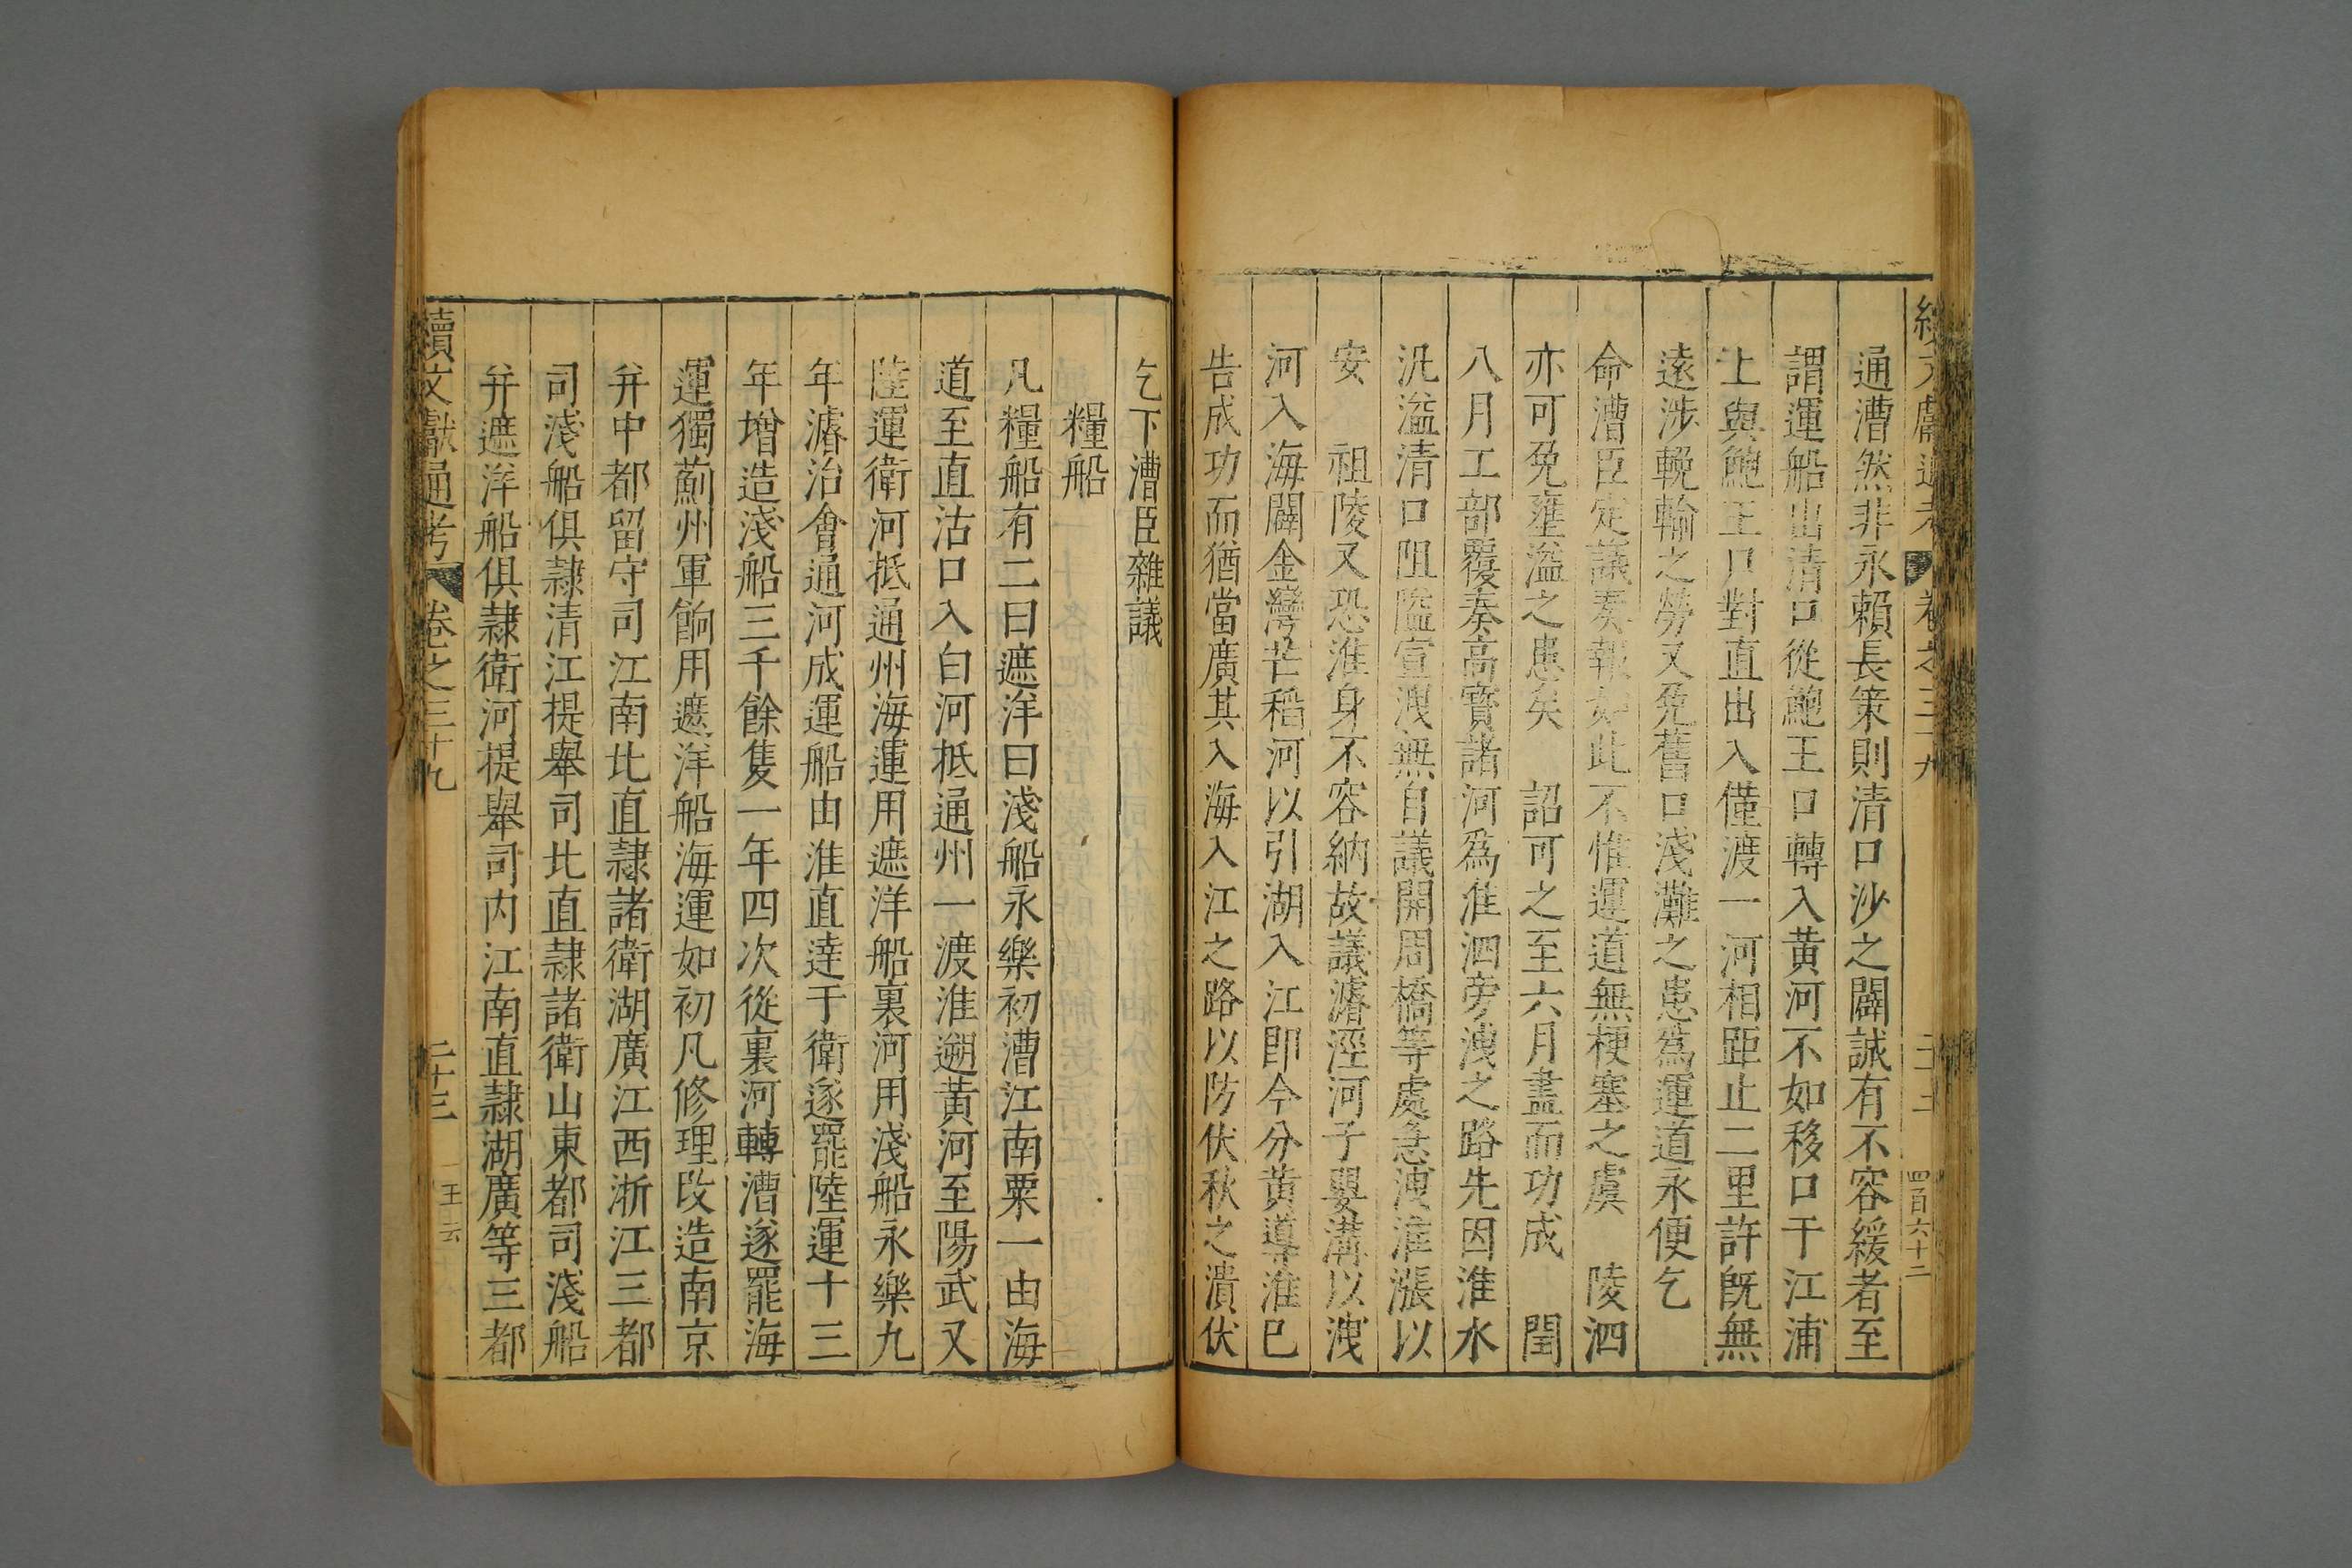 續文獻通考 卷之三十九 二十二 四百六十二
通漕然非永賴長策則清口沙之闢誠有不容緩者至
謂運船出清口從鮑王口轉入黃河不如移口于江浦
上與鮑王口對直出入僅渡一河相距止二里許既無
遠涉輓輸之勞又免舊口淺灘之患為運道永便乞
命漕臣定議奏報如此不惟運道無梗塞之虞 陵泗
亦可免壅溢之患矣 詔可之至六月盡而功成 閏
八月工部覆奏高寶諸河為淮泗旁洩之路先因淮水
汎溢清口阻隘宣洩無自議開周橋等處急洩淮漲以
安 祖陵又恐淮身不容納故議濬涇河子嬰溝以洩
河入海闢金灣芒稻河以引湖入江即今分黃導淮巳
告成功而猶當廣其入海入江之路以防伏秋之潰伏
乞下漕臣雜議
糧船
凡糧船有二曰遮洋曰淺船永樂初漕江南粟一由海
道至直沽口入白河抵通州一渡淮遡黃河至陽武又
陸運衛河抵通州海運用遮洋船裏河用淺船永樂九
年濬治會通河成運船由淮直達于衛遂罷陸運十三
年增造淺船三千餘隻一年四次從裏河轉漕遂罷海
運獨薊州軍餉用遮洋船海運如初凡修理改造南京
并中都留守司江南北直隷諸衛湖廣江西浙江三都
司淺船俱隷清江提舉司北直隷諸衛山東都司淺船
并遮洋船俱隷衛河提舉司内江南直隷湖廣等三都
續文獻通考 卷之三十九 二十三 王云